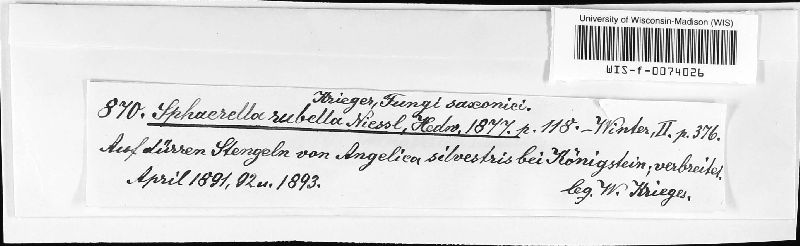 University of Wisconsin-Madison (WIS)
WIS-f-0074026
Krieger, Fungi saxonici.
870. Sphaerella rubella Niessl, Hedw. 1877. p. 118. – Winter, II. p. 376.
Auf dürren Stengeln von Angelica silvestris bei Königstein, verbreitet.
April 1891, 92 u. 1893.
leg. W. Krieger.